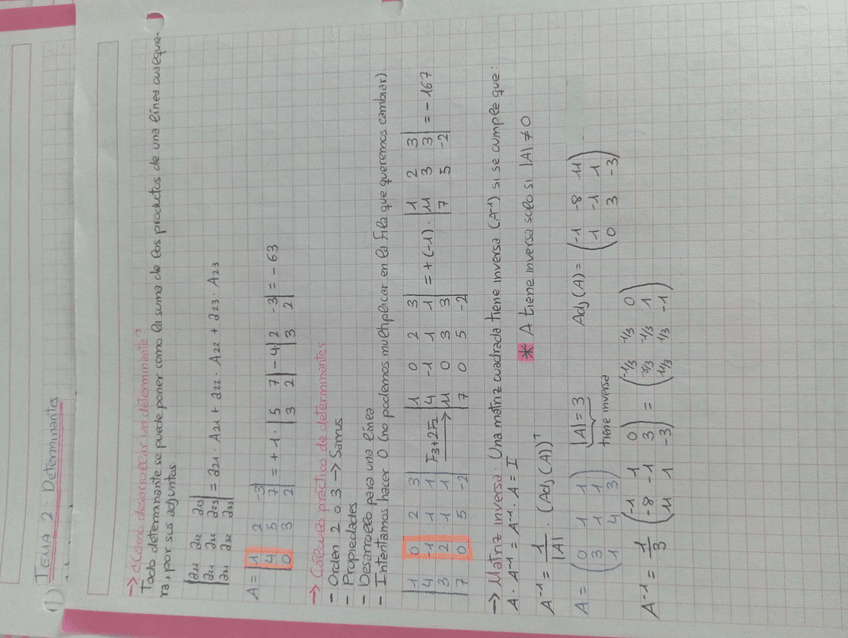 1) TEMA 2: Determinantes
→ ¿Cómo desarrollar un determinante?
Todo determinante se puede poner como la suma de los productos de una línea cualquie-
ra, por sus adjuntos
|a11 a12 a13|
|a21 a22 a23| = a21 · A21 + a22 · A22 + a23 · A23
|a31 a32 a33|
A = |1 2 -3|
|4 5 7| = +1 · |5 7| - 4 |2 -3| = -63
|0 3 2| |3 2| |3 2|
→ Cálculo práctico de determinantes
- Orden 2 o 3 → Sarrus
- Propiedades
- Desarrollo para una línea
- Intentamos hacer 0 (no podemos multiplicar en la fila que queremos cambiar).
|1 0 2 3| |1 0 2 3|
|4 -1 1 1| F3+2F2 |4 -1 1 1| = +(-1) · |1 2 3|
|3 2 1 1| → |11 0 3 3| |11 3 3| = -167
|7 0 5 -2| |7 0 5 -2| |7 5 -2|
→ Matriz inversa: Una matriz cuadrada tiene inversa (A⁻¹) si se cumple que:
A · A⁻¹ = A⁻¹ · A = I
* A tiene inversa solo si |A| ≠ 0
A⁻¹ = 1/|A| · (Adj(A))ᵗ
A = (0 1 1) |A| = 3 Adj(A) = (-1 -8 11)
(3 1 1) tiene inversa (1 -1 1)
(1 4 3) (0 3 -3)
A⁻¹ = 1/3 (-1 1 0) = (-1/3 1/3 0)
(-8 -1 3) (-8/3 -1/3 1)
(11 1 -3) (11/3 1/3 -1)